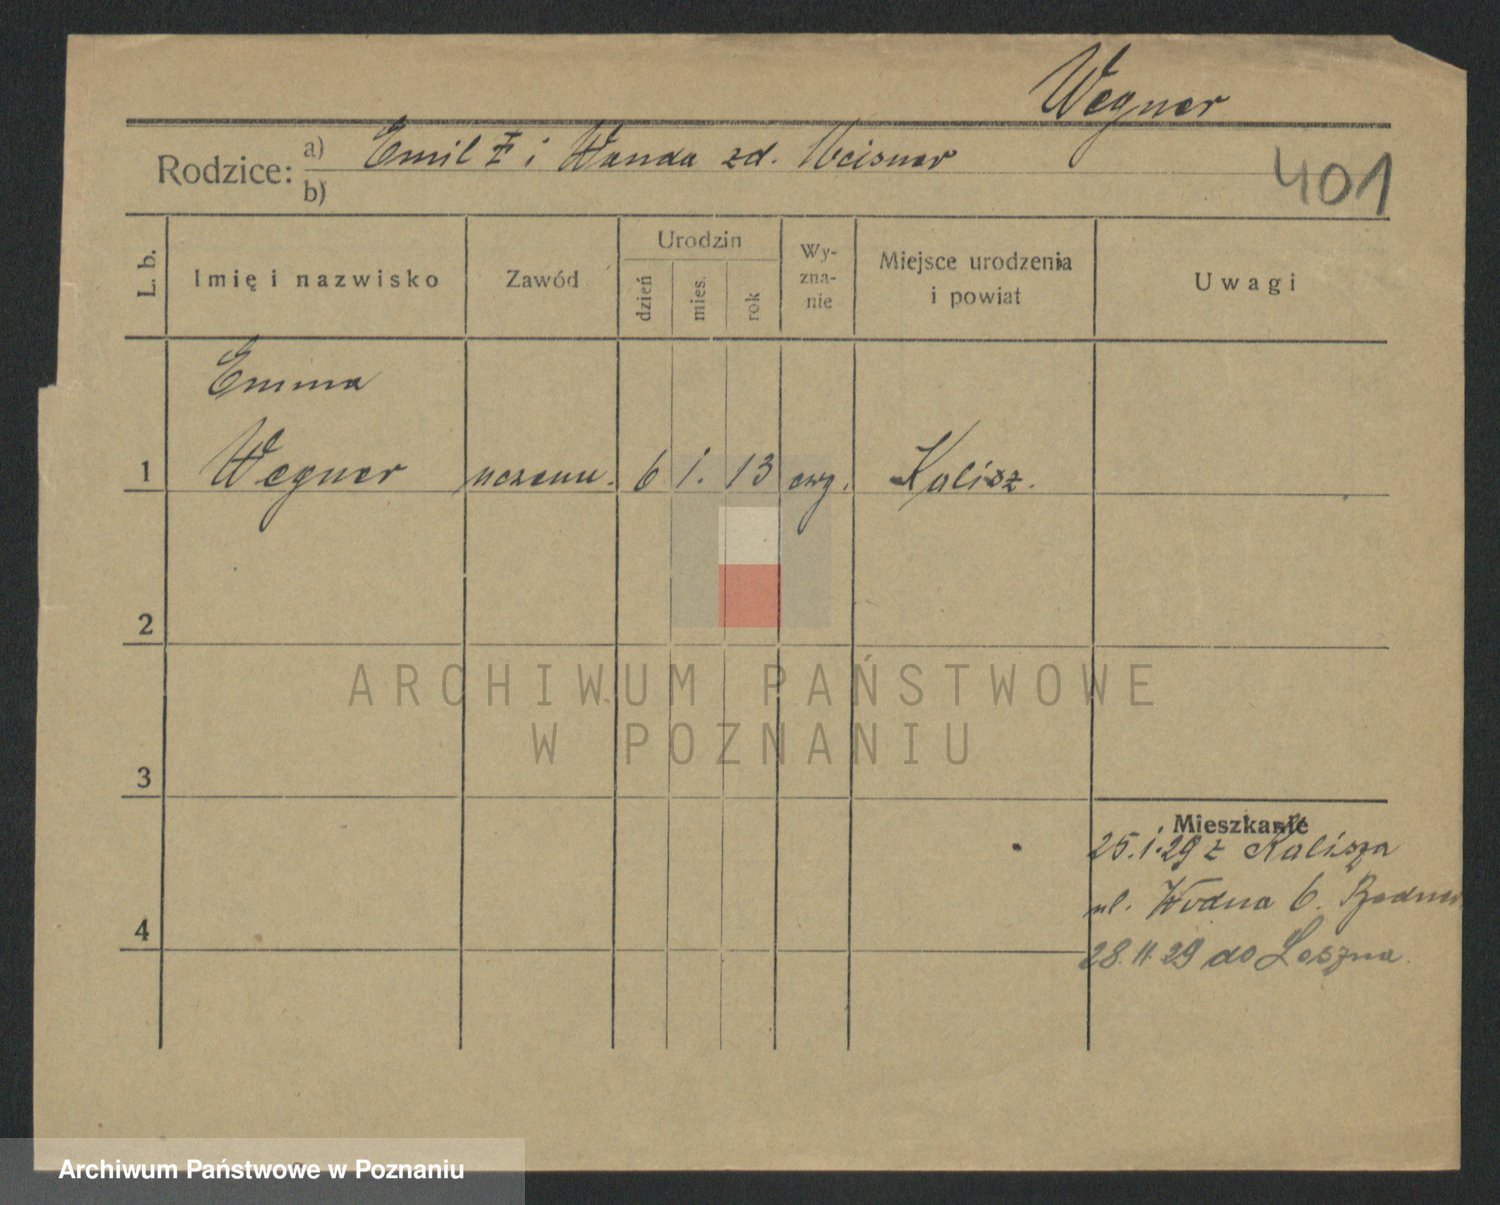 Wegner
Rodzice: a) Emil i Wanda zd. Weisner
b)
401
L. b.
Imię i nazwisko
Zawód
Urodzin
dzień
mies.
rok
Wy-
zna-
nie
Miejsce urodzenia
i powiat
Uwagi
Emma
1 Wegner uczenn. 6 i. 13 ewg. Kalisz.
2
ARCHIWUM PAŃSTWOWE
W POZNANIU
3
Mieszkanie
25. i. 29 z Kalisza
4 ul. Wodna 6.
28. 11 29 do Leszna.
Archiwum Państwowe w Poznaniu